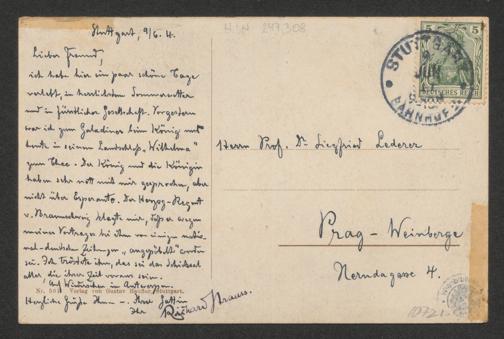 Stuttgart, 9/6. 4.
H.I.N. 247.308
Lieber Freund,
ich habe hier ein paar schöne Tage
verlebt, in herrlichstem Sommerwetter
und in fürstlicher Gesellschaft. Vorgestern
war ich zum Galadiner beim König und
heute in seinem Landschloß „Wilhelma"
zum Thee. Der König und die Königin
haben sehr nett mit mir gesprochen, aber
nicht über Esperanto. Der Herzog-Regent
v. Braunschweig klagte mir, daß er wegen
meines Vortrages bei ihm von einigen
-deutschen Zeitungen „angepöbelt" worden
sei. Ich tröstete ihn, das sei das Schicksal
aller die ihrer Zeit voraus seien.
Auf Wiedersehen in Antwerpen.
Herzliche Grüße Ihnen – Ihrer Gattin
Ihr Richard Strauss.
Verlag von Gustav Stuttgart.
5 5
DEUTSCHES REICH
STUTTGART
JUN
BAHNHOF
Herrn Prof. Dr. Siegfried Lederer
Prag - Weinberge
Nerudagasse 4.